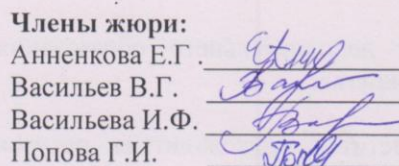 Члены жюри:
Анненкова Е.Г .
Васильев В.Г.
Васильева И.Ф.
Попова Г.И.